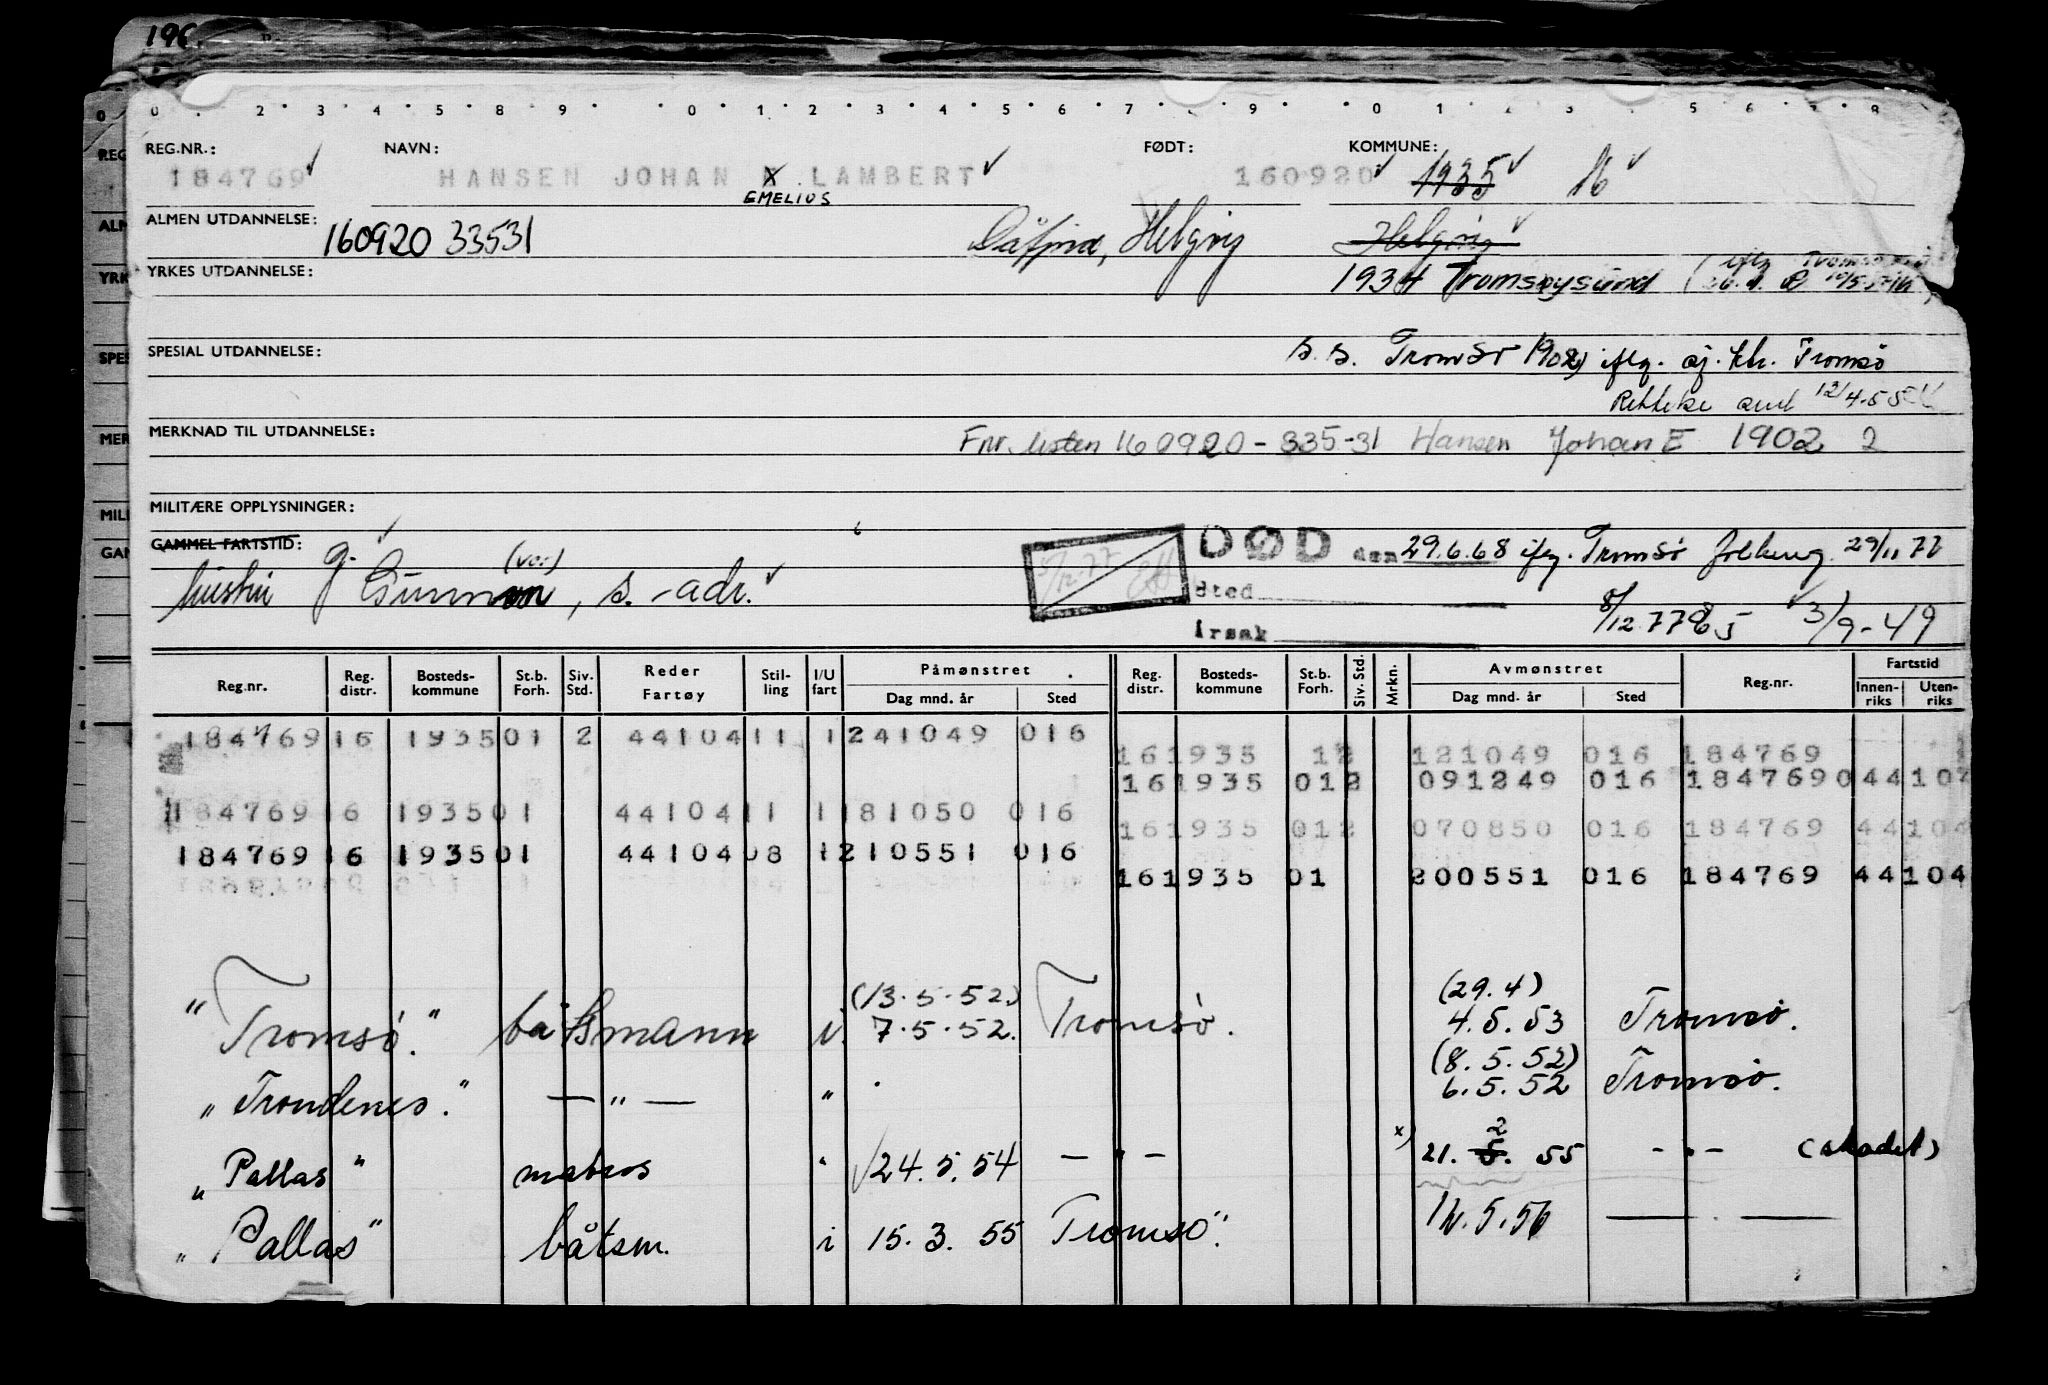 196
0 . 2 . 3 . 4 . 5 . 8 . 9 . 0 . 1 . 2 . 3 . 4 . 5 . 6 . 7 . 9 . 0 1 2 3 . 5 6 . 8
REG.NR.: NAVN: FØDT: KOMMUNE:
184769 HANSEN JOHAN LAMBERT 160920 1935 16
EMELIUS
ALMEN UTDANNELSE: 160920 33531 Helgøy Helgøy
YRKES UTDANNELSE: 1934 Tromsøysund
SPESIAL UTDANNELSE: s. s. Tromsø 1902, iflg. sj. ktr. Tromsø
12/4-55
MERKNAD TIL UTDANNELSE: Fnr. listen 160920-335-31 Hansen Johan E 1902 2
MILITÆRE OPPLYSNINGER:
GAMMEL FARTSTID: DØD den 29.6.68 Tromsø 29/11 77
hustru g. Gunn (vor), s.-adr. 5/12.77 Sted
Årsak 8/12.77 3/9-49
Reg.nr. Reg. distr. Bosteds-kommune St.b. Forh. Siv. Std. Reder Fartøy Stil-ling I/U fart Påmønstret Dag mnd. år Sted Reg. distr. Bosteds-kommune St.b. Forh. Siv. Std. Mrkn. Avmønstret Dag mnd. år Sted Reg.nr. Fartstid Innen-riks Uten-riks
184769 16 1935 01 2 44104 11 1 241049 016
16 1935 12 121049 016 184769
16 1935 01 2 091249 016 184769 0 44 104
184769 16 1935 01 44104 11 1 181050 016
16 1935 01 2 070850 016 184769 44 104
184769 16 1935 01 44104 08 1 210551 016
16 1935 01 200551 016 184769 44 104
(13.5.52) (29.4)
"Tromsø." båtsmann i. 7.5.52. Tromsø. 4.5.53 Tromsø.
(8.5.52)
"Trondenes." — " — " 6.5.52 Tromsø.
"Pallas" matros " 24.5.54 — " — x) 21. 5. 2 55 - " - (skadet)
"Pallas" båtsm. i 15.3.55 Tromsø. 5.56 — . —